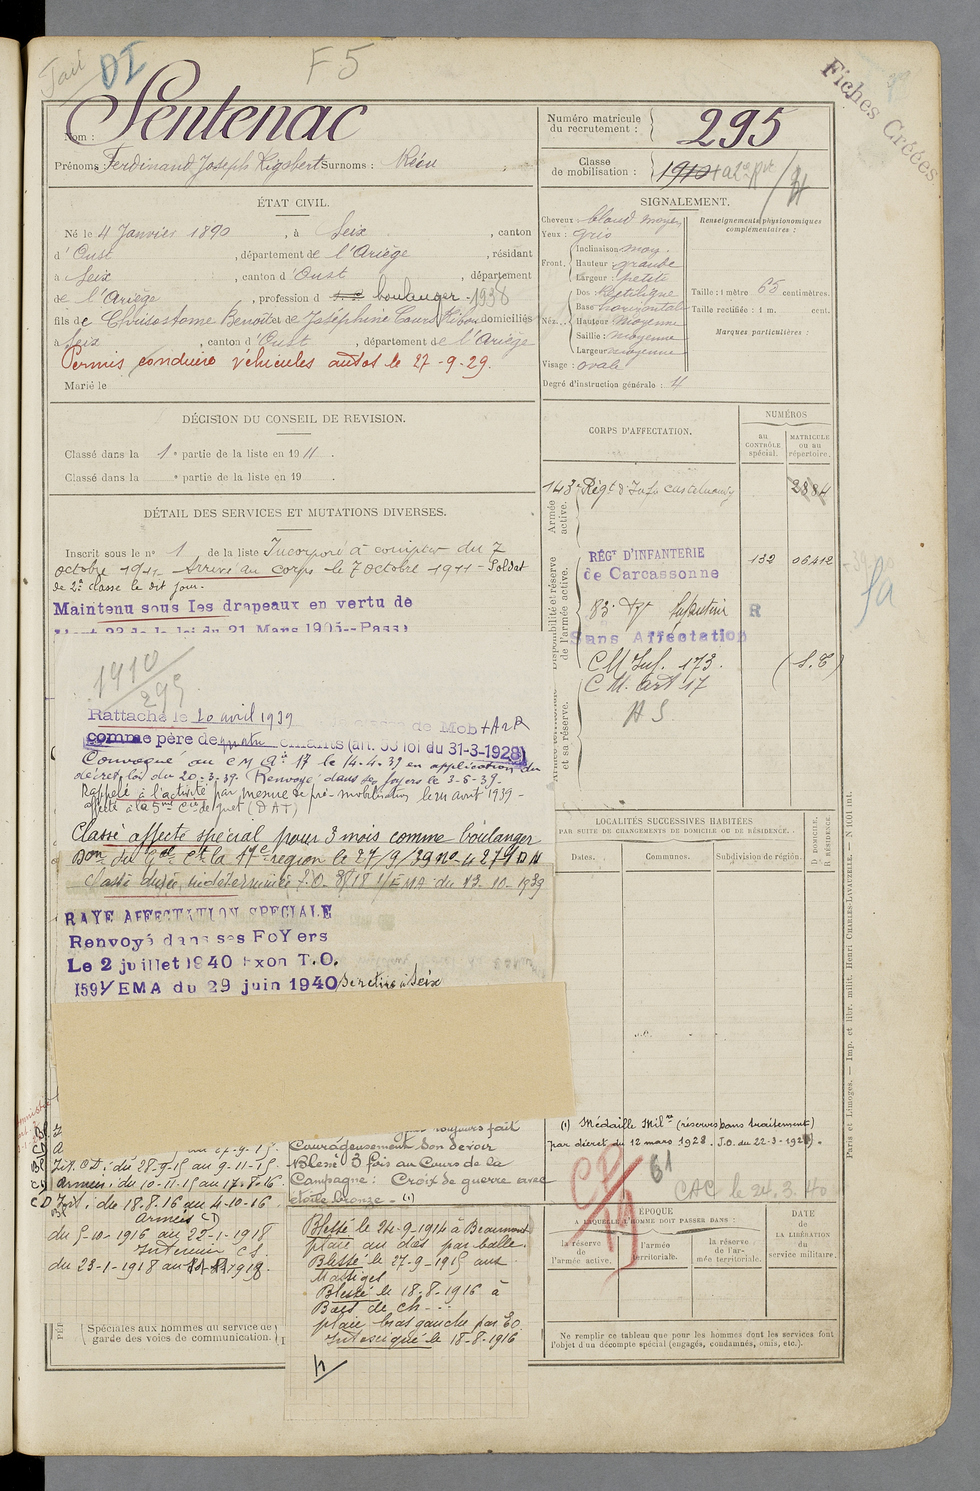 Fait
DI
F 5
Fiches Créées
Nom : Sentenac
Prénoms : Ferdinand Joseph Rigobert Surnoms :
Numéro matricule du recrutement : 295
Classe de mobilisation : 1910
ÉTAT CIVIL.
Né le 4 Janvier 1890, à Seix, canton
d'Oust, département de l'Ariège, résidant
à Seix, canton d'Oust, département
de l'Ariège, profession d boulanger. 1938
fils de Chrisostome Benoit et de Joséphine domiciliés
à Seix, canton d'Oust, département de l'Ariège
Permis conduire véhicules autos le 27-9-29.
Marié le
SIGNALEMENT.
Cheveux : blond moyen
Yeux : gris
Front.
Inclinaison moy.
Hauteur : grande
Largeur : petite
Nez.
Dos : Rectiligne
Base horizontale
Hauteur moyenne
Saillie : moyenne
Largeur moyenne
Visage : ovale
Degré d'instruction générale : 4
Renseignements physionomiques complémentaires :
Taille : 1 mètre 65 centimètres.
Taille rectifiée : 1 m. cent.
Marques particulières :
DÉCISION DU CONSEIL DE REVISION.
Classé dans la 1e partie de la liste en 1911.
Classé dans la e partie de la liste en 19 .
DÉTAIL DES SERVICES ET MUTATIONS DIVERSES.
Inscrit sous le n° 1 de la liste Incorporé à compter du 7
octobre 1911. Arrivé au corps le 7 octobre 1911 - Soldat
de 2e classe le dit jour.
Maintenu sous les drapeaux en vertu de
l'art 23 de la loi du 21 Mars 1905--Passé
1910
295
Rattaché le 10 avril 1939 de Mob + A2R
comme père de quatre enfants (art. 58 loi du 31-3-1928)
Convoqué au C M A n° 17 le 14-4-39 en application du
décret loi du 20-3-39. Renvoyé dans ses foyers le 3-5-39-
Rappelé à l'activité par mesure de pré-mobilisation le avril 1939-
affecté à la 5me Cie de guet (DAT)
Classé affecté spécial pour 3 mois comme boulanger
du Gal Ct la 17e région le 27/9/39 No 4279
Classé durée indéterminée 1/EMA du 13-10-1939
RAYE AFFECTATION SPECIALE
Renvoyé dans ses FoYers
Le 2 juillet 1940 Exon T.O.
1591/EMA du 29 juin 1940 Se retire à Seix
CORPS D'AFFECTATION.
NUMÉROS
au CONTRÔLE spécial.
MATRICULE ou au répertoire.
Armée active.
143e Régt d'Infie Castelnaudary 2884
Disponibilité et réserve de l'armée active.
RÉGt D'INFANTERIE
de Carcassonne 132 06412
R
Sans Affectation
C M Inf. 173. (S.T)
C M. Art 17
A S
Armée territoriale et sa réserve.
LOCALITÉS SUCCESSIVES HABITÉES
PAR SUITE DE CHANGEMENTS DE DOMICILE OU DE RÉSIDENCE.
D DOMICILE. R RÉSIDENCE.
Dates.
Communes.
Subdivision de région.
(1) Médaille Milre (réserve sans traitement)
par décret du 12 mars 1928. J.O. du 22-3-1928.
CAC le 24.3.40
61
toujours fait
Courageusement son devoir
Blessé 3 fois au Cours de la
Campagne : Croix de guerre avec
étoile bronze - (1)
Int. CD : du 28-9-15 au 9-11-15.
Armées : du 10-11-15 au 17-8-16
CD Int : du 18.8.16 au 4-10-16
Armées CD
du 5-10-1916 au 22-1-1918
Intérieur CS.
du 23-1-1918 au 1918.
Blessé le 24-9-1914 à Beaumont
plaie au dos par balle.
Blessé le 27-9-1915 aux
Massiges
Blessé le 18-8-1916 à
plaie bras gauche par EO
Intoxiqué le 18-8-1916
Spéciales aux hommes du service de
garde des voies de communication.
ÉPOQUE
A LAQUELLE L'HOMME DOIT PASSER DANS :
la réserve de l'armée active.
l'armée territoriale.
la réserve de l'armée territoriale.
DATE de LA LIBÉRATION du service militaire.
Ne remplir ce tableau que pour les hommes dont les services font
l'objet d'un décompte spécial (engagés, condamnés, omis, etc.).
Paris et Limoges. — Imp. et libr. milit. Henri CHARLES-LAVAUZELLE. — N° 101 int.